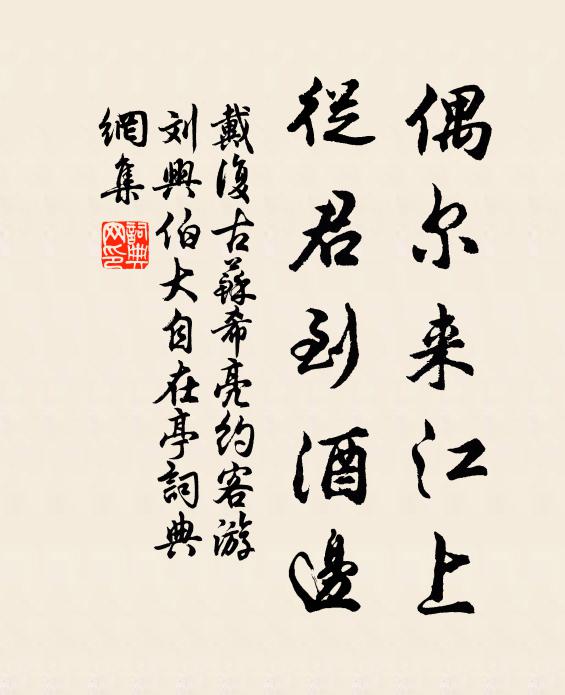 偶尔来江上
從君到酒邊
戴復古蘇希亮约客游
刘興伯大自在亭詞典
網集
詞典网印